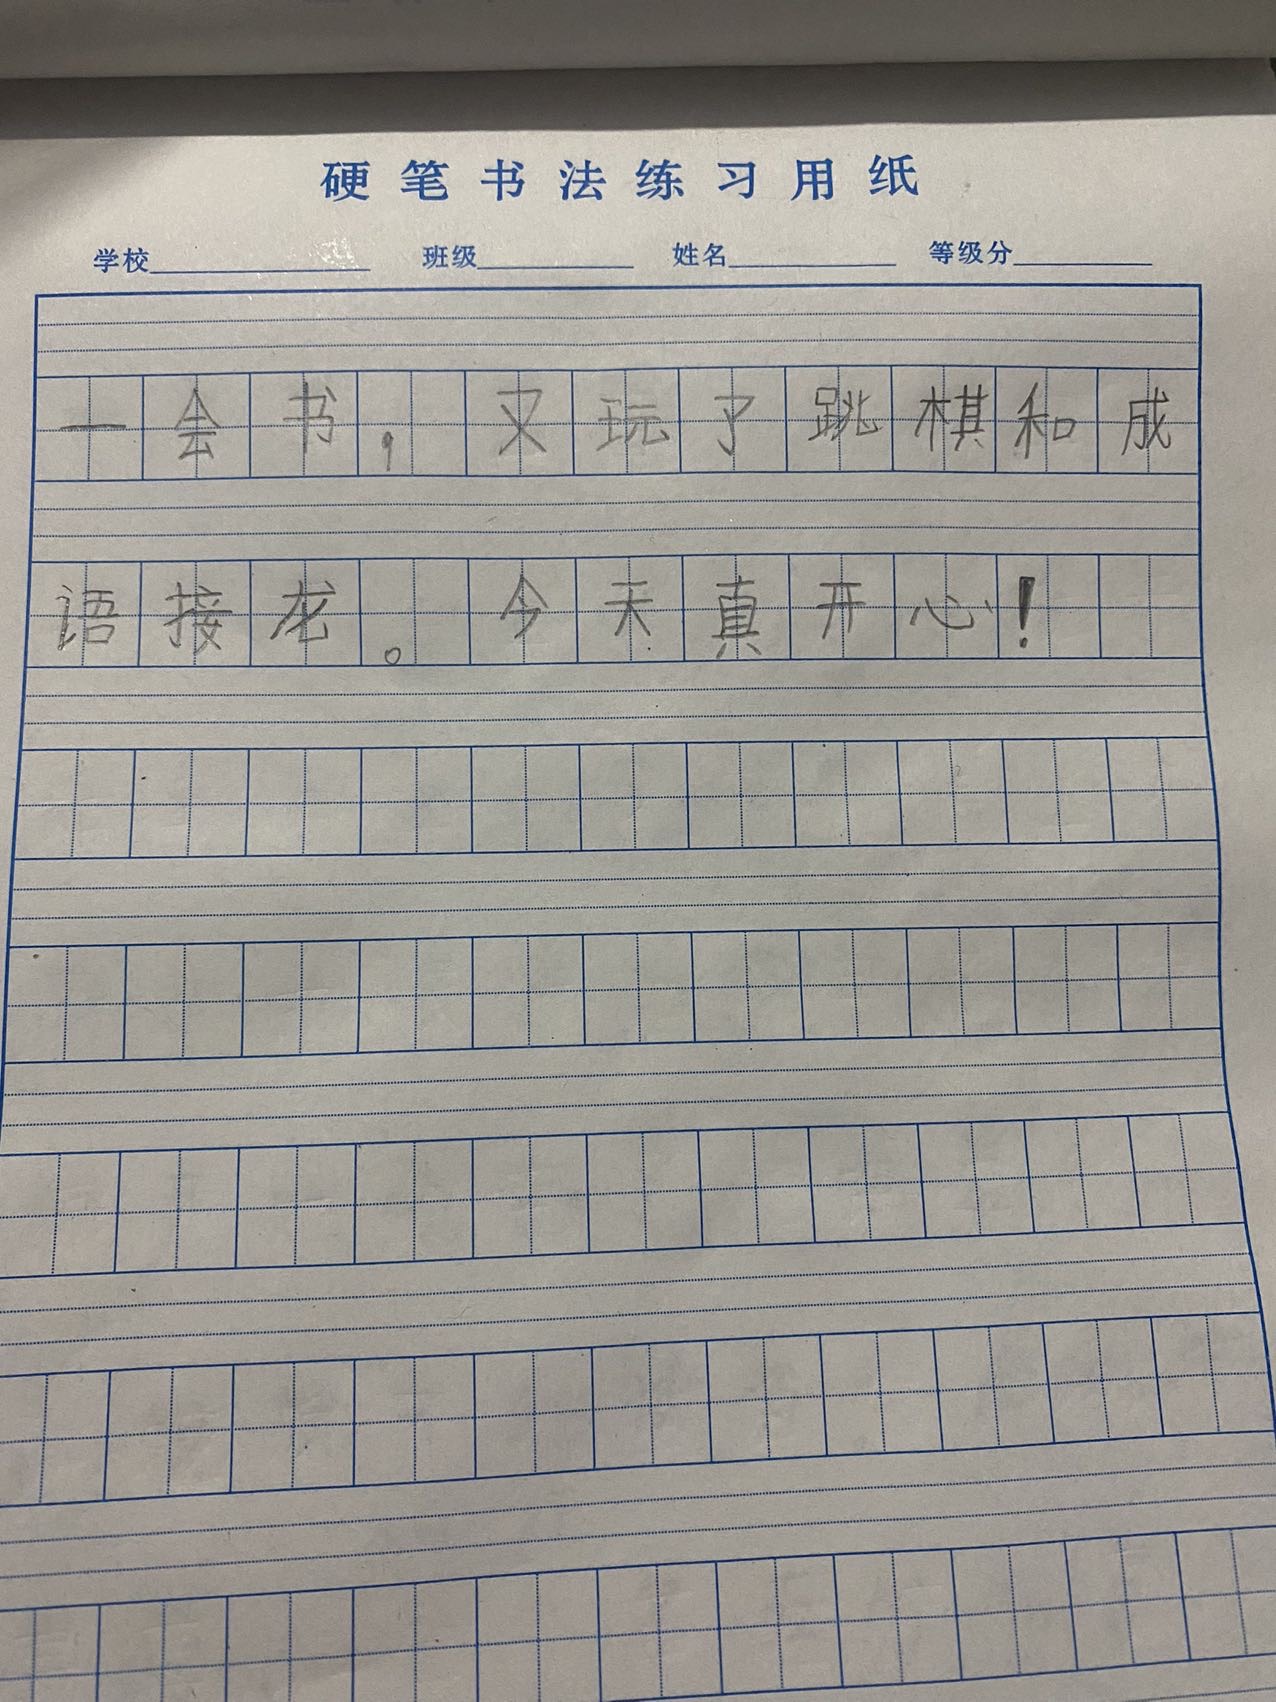 硬笔书法练习用纸
学校 班级 姓名 等级分
一会书，又玩了跳棋和成
语接龙。今天真开心！